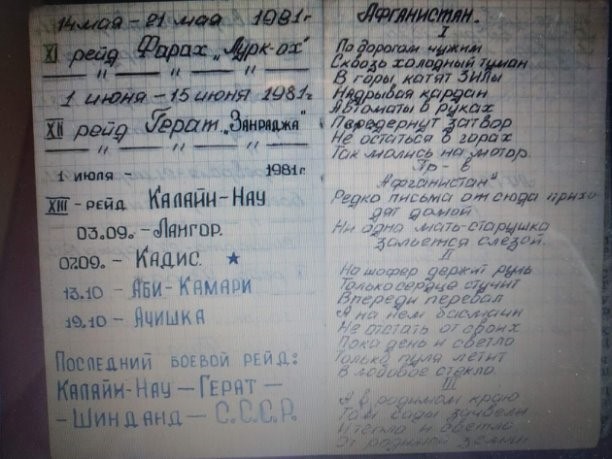 14 мая – 21 мая 1981г
XI рейд Фарах „Лурк-ох"
— " — " — " —
1 июня – 15 июня 1981г
XII рейд Герат „Занраджа"
— " — " — " —
1 июля – 1981г.
XIII – рейд Калайи-Нау
03.09. – Лангор.
07.09. – Кадис. ★
13.10 – Аби-Камари
19.10 – Ачишка
Последний боевой рейд:
Калайи-Нау – Герат –
– Шинданд – С.С.С.Р.
Афганистан.
I
По дорогам чужим
Сквозь холодный туман
В горы катят ЗИЛы
Надрывая кардан
Автоматы в руках
Передернут затвор
Не остаться в горах
Так молись на мотор.
Пр – в
Афганистан"
Редко письма отсюда прихо-
дят домой.
Ни одна мать-старушка
зальется слезой.
II
Но шофер держит руль
Только сердце стучит
Впереди перевал
А на нем басмачи
Не отстать от своих
Пока день и светло
Только пуля летит
В лобовое стекло.
III
А в родимом краю
Там сады зацвели
И тепло и светло
От родимой земли